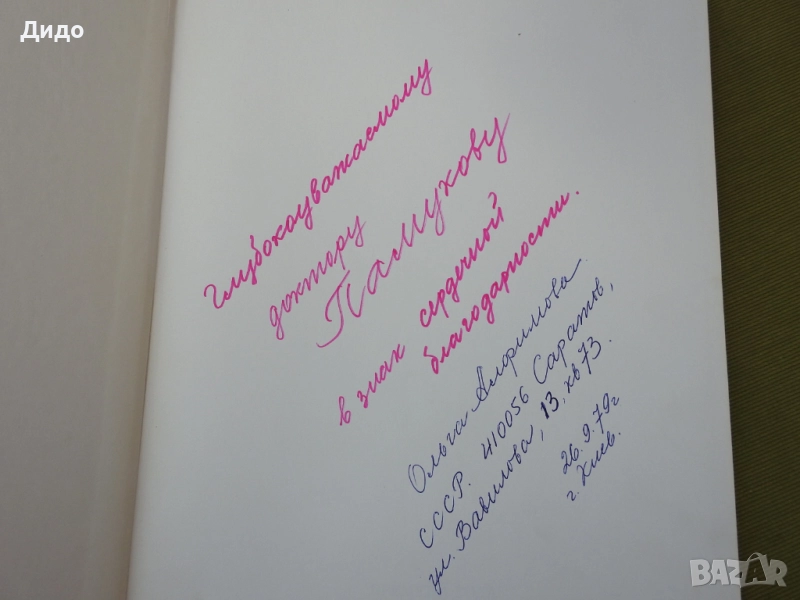 Дидо
глубокоуважаемому
доктору
Памукову
в знак сердечный
благодарности.
Ольга Алфимова
СССР. 410056 Саратов,
ул. Вавилова, 13, кв 73.
26.9.79г
г. Киев.
BAZAR